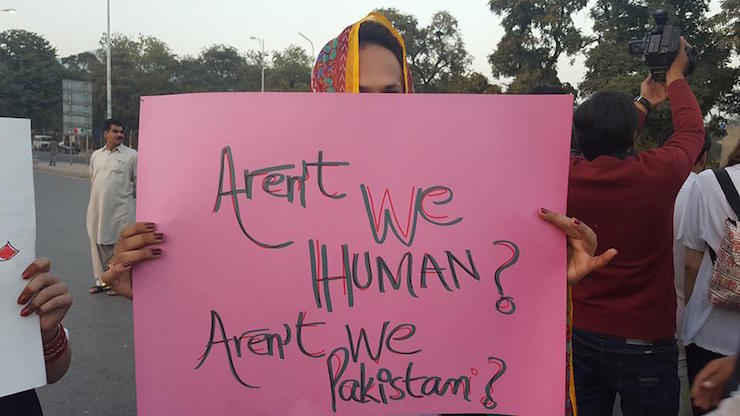 Aren't WE
HUMAN?
Aren't We
Pakistani?